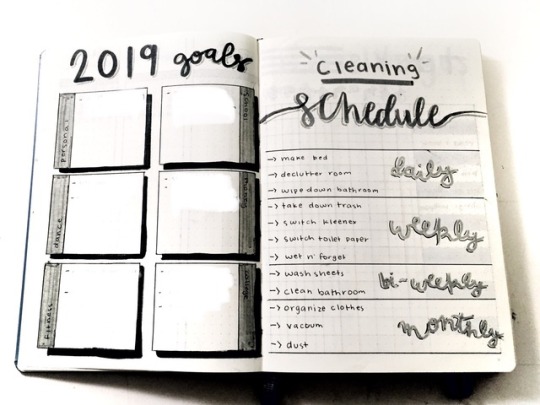 2019 goals
personal
school
dance
money
fitness
college
Cleaning
schedule
-> make bed
-> declutter room
-> wipe down bathroom
daily
-> take down trash
-> switch kleenex
-> switch toilet paper
-> wet n' forget
weekly
-> wash sheets
-> clean bathroom
bi-weekly
-> organize clothes
-> vacuum
-> dust
monthly